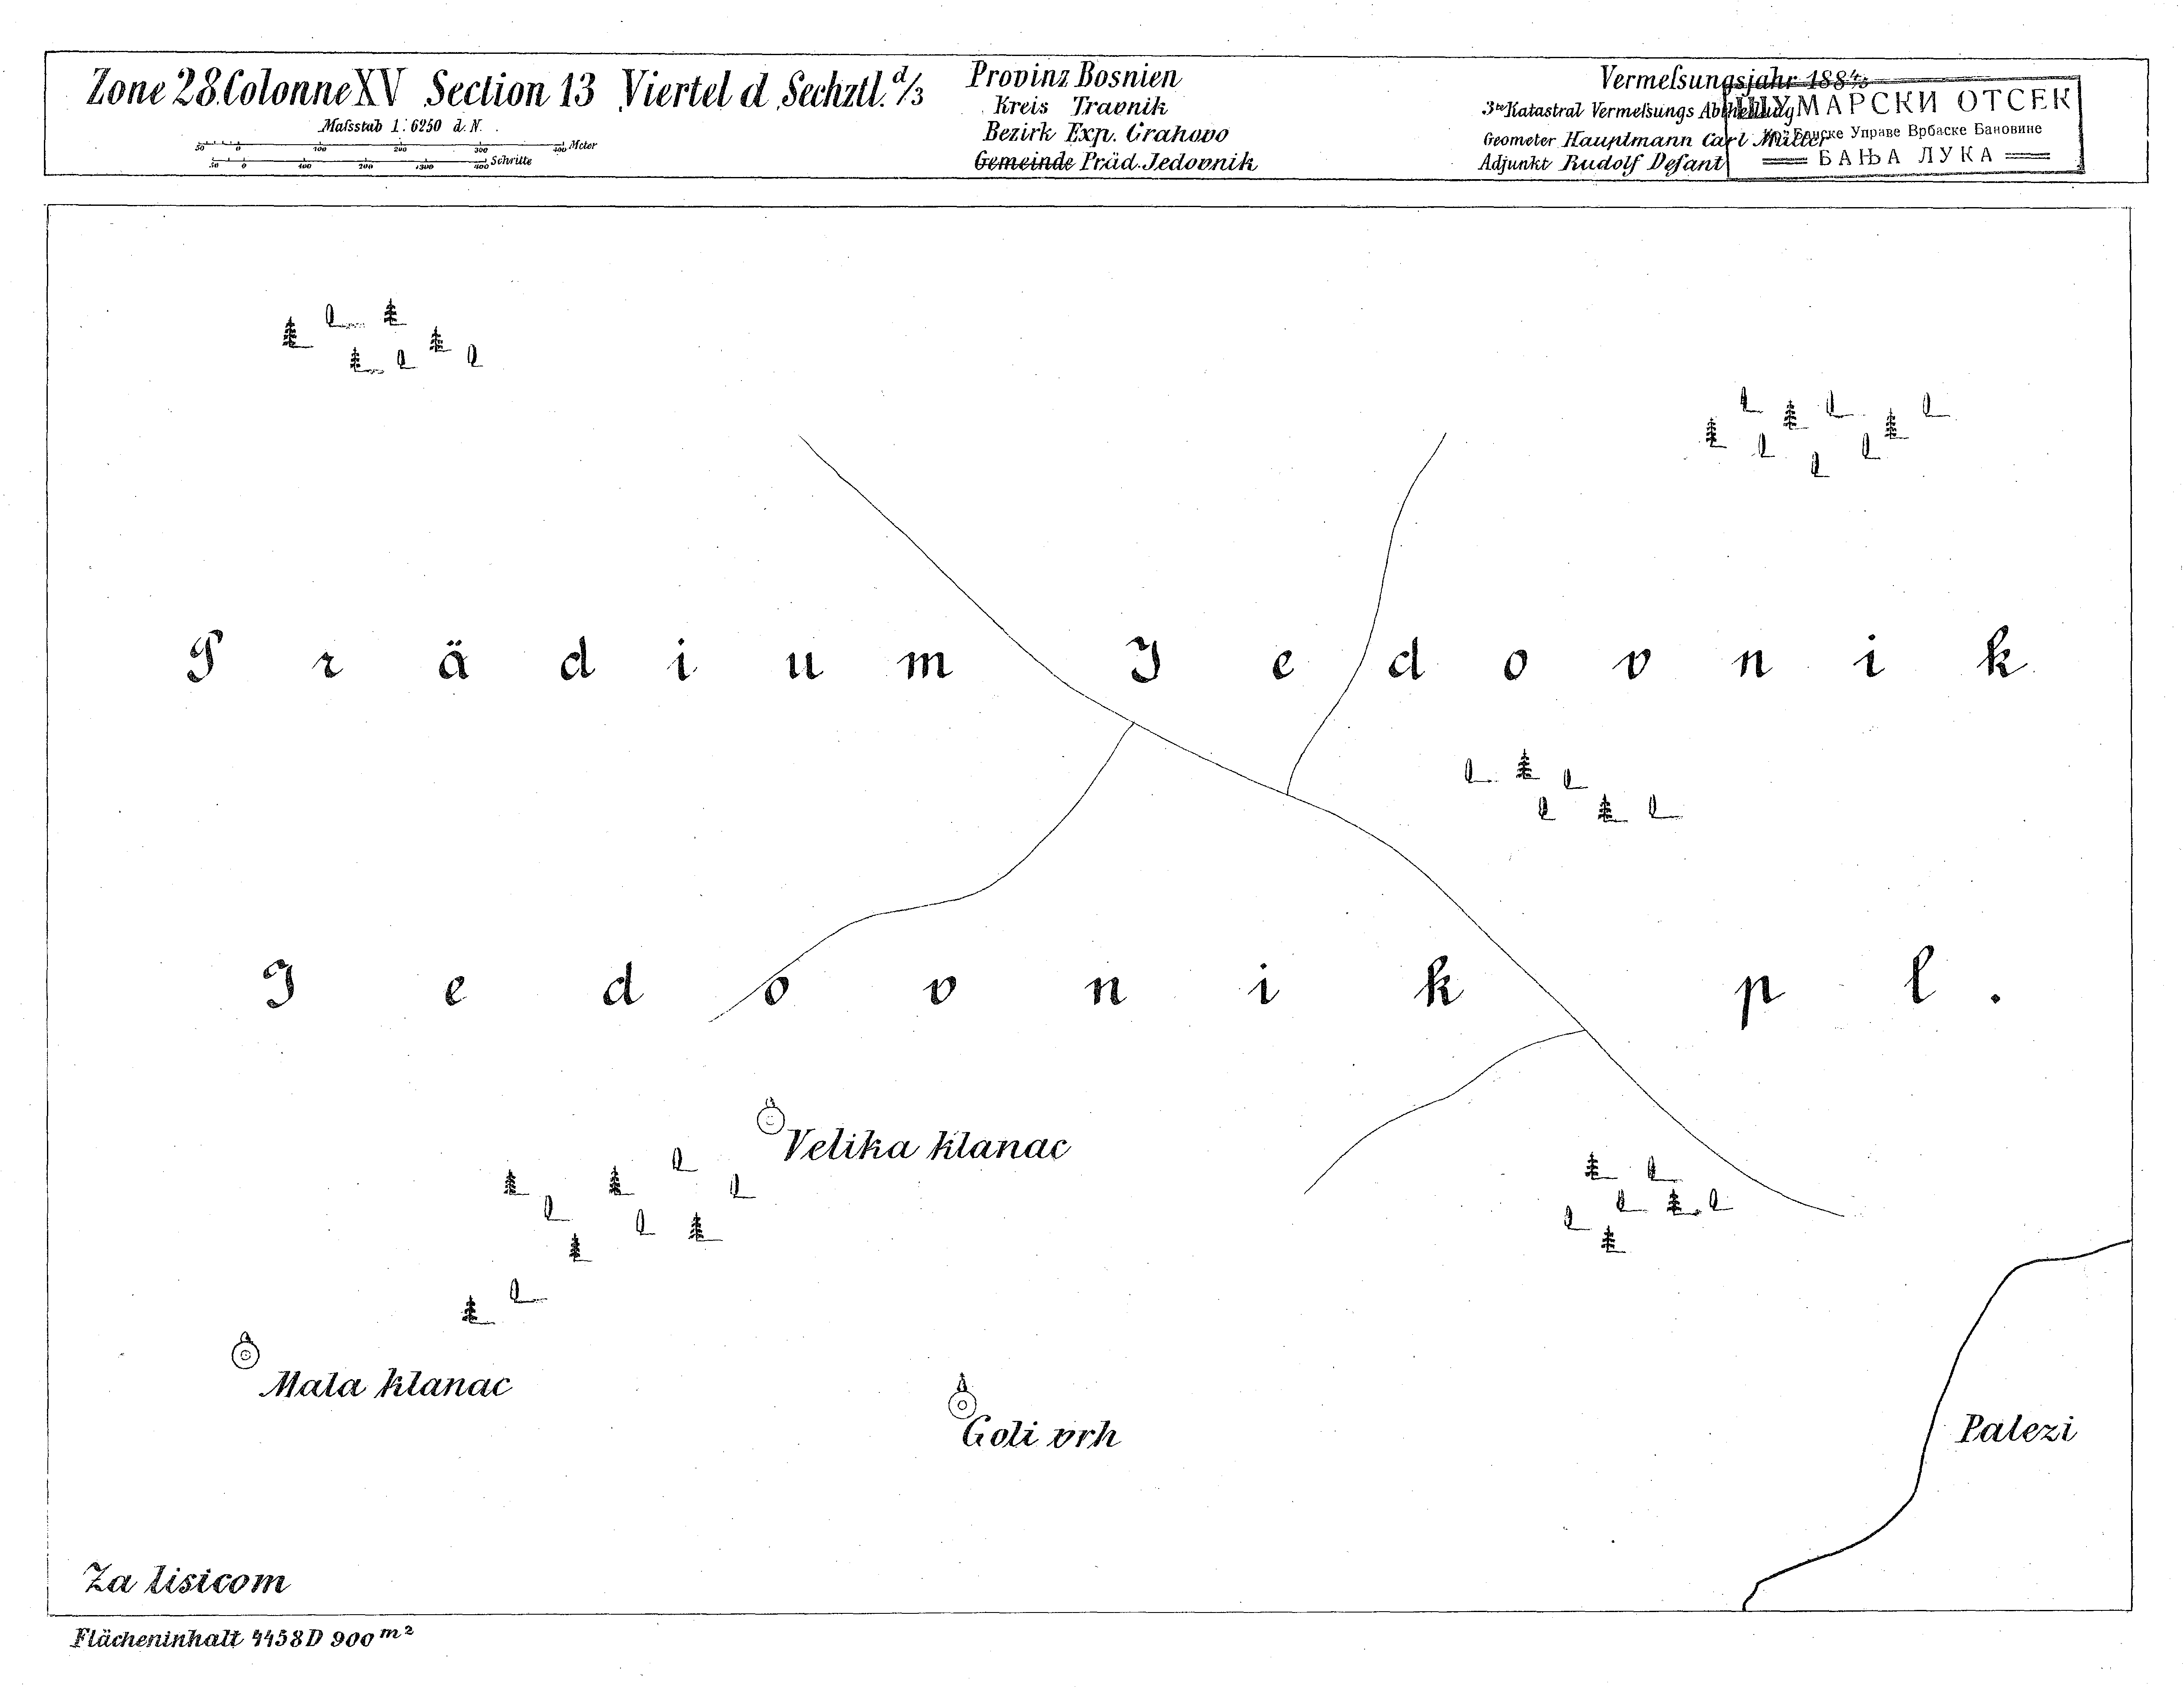 Zone 28. Colonne XV Section 13 Viertel d Sechztl. d/3
Maſsstab 1:6250 d. N.
50 0 100 200 300 400 Meter
50 0 100 200 300 400 Schritte
Provinz Bosnien
Kreis Travnik
Bezirk Exp. Grahovo
Gemeinde Präd. Jedovnik
Vermeſsungsjahr 188⁴/₅
3te Katastral Vermeſsungs Abtheilung
Geometer Hauptmann Carl Müller
Adjunkt Rudolf Deſant
ШУМАРСКИ ОТСЕК
Банске Управе Врбаске Бановине
БАЊА ЛУКА
Prädium Jedovnik
Jedovnik pl.
Velika klanac
Mala klanac
Goli vrh
Palezi
Za lisicom
Flächeninhalt 4458 D 900 m²